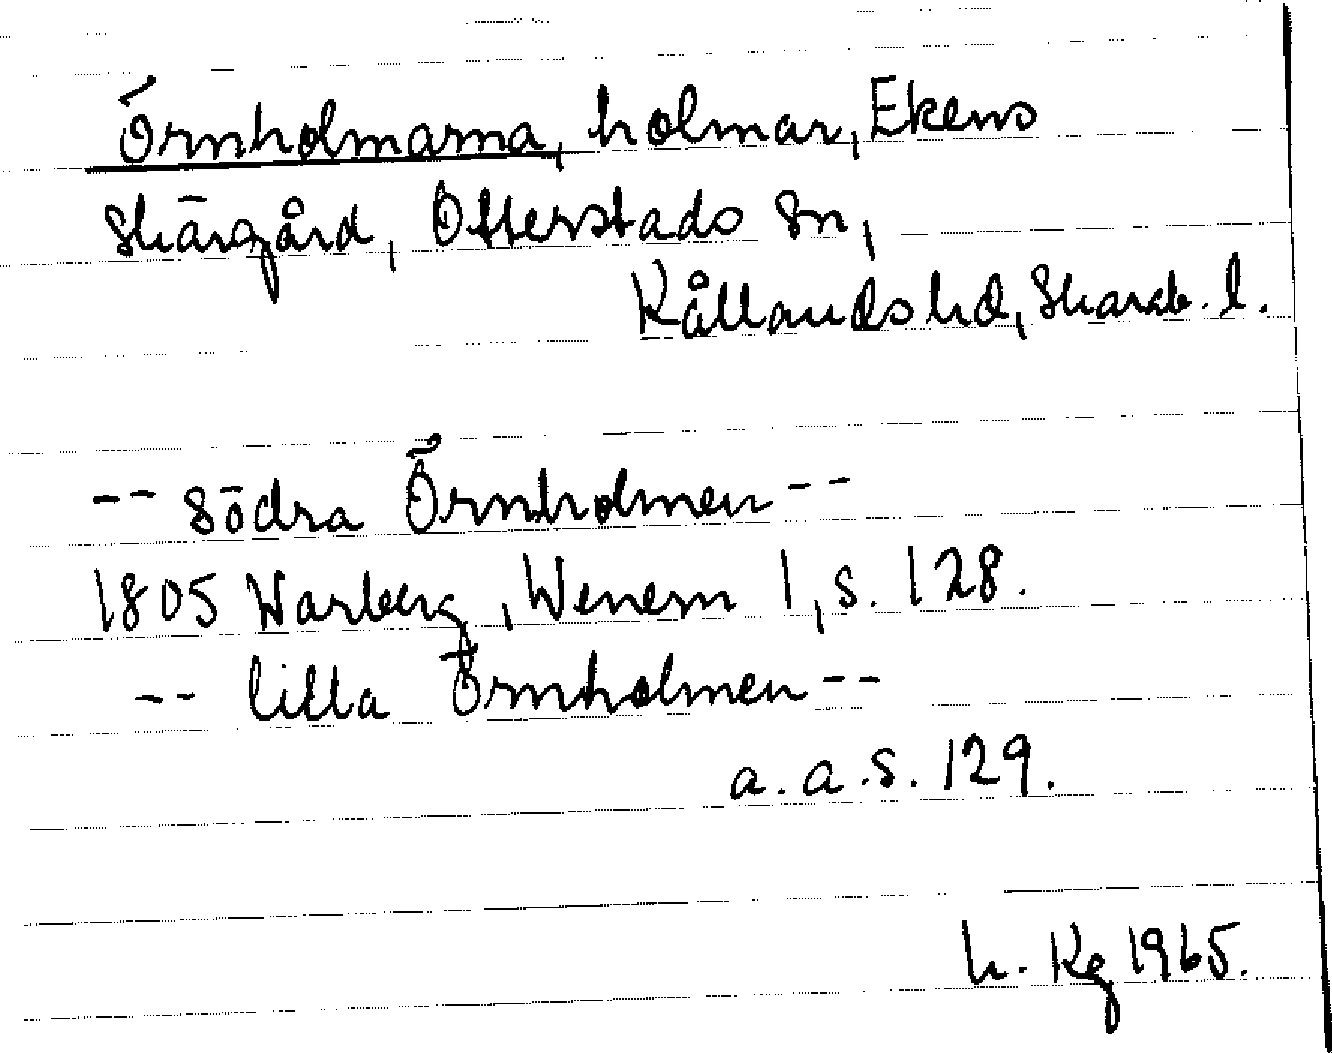 Örnholmarna, holmar, Ekens
skärgård, Otterstads sn,
Kållands hd, Skarab. l.
-- södra Örnholmen --
1805 Warberg, Wenern 1, s. 128.
-- lilla Örnholmen --
a. a. s. 129.
h. Kg 1965.